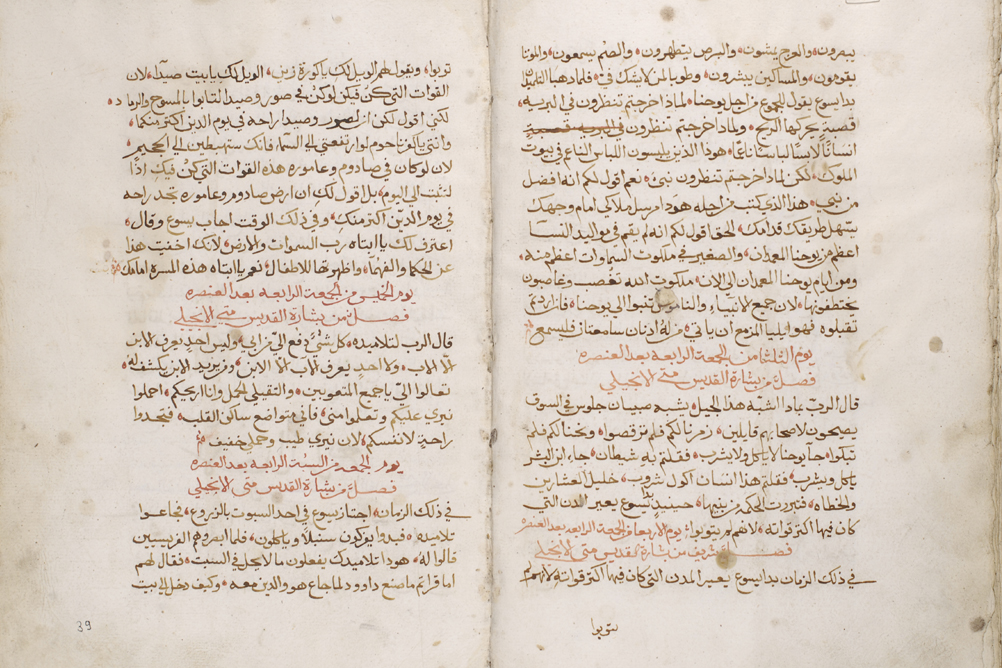 يبصرون والعرج يمشون والبرص يتطهرون والصم يسمعون والموتا
يقومون والمساكين يبشرون وطوبا لمن لا يشك في فلما ذهبا التلميذان
بدا يسوع يقول للجموع من اجل يوحنا لماذا خرجتم تنظرون في البريه
قصبة يحركها الريح ولماذا خرجتم تنظرون
انسانا لابسا لباسا ناعما هوذا الذين يلبسون اللباس الناعم في بيوت
الملوك لكن لماذا خرجتم تنظرون نبي نعم اقول لكم انه افضل
من نبي هذا الذي كتب من اجله هوذا مرسل ملاكي امام وجهك
يسهل طريقك قدامك الحق اقول لكم انه لم يقم في مواليد النسا
اعظم من يوحنا المعمدان والصغير في ملكوت السماوات اعظم منه
ومن ايام يوحنا المعمدان الي الان ملكوت الله تغصب وغاصبون
يختطفونها لان جميع الانبياء والناموس تنبوا الي يوحنا فان اردتم
تقبلوه فهو ايليا المزمع ان ياتي من له اذنان سامعتان فليسمع
يوم الثلثا من الجمعة الرابعه بعد العنصره
فصل من بشارة القديس متي الانجيلي
قال الرب بماذا اشبه هذا الجيل يشبه صبيان جلوس في السوق
يصيحون لاصحابهم قايلين زمرنا لكم فلم ترقصوا ونحنا لكم فلم
تبكوا جا يوحنا لا ياكل ولا يشرب فقلتم به شيطان جاء ابن البشر
ياكل ويشرب فقلتم هذا انسان اكول شروب خليل العشارين
والخطاه فتبررت الحكمه من بنيها حينيذ بدا يسوع يعير المدن التي
كان فيها اكثر قواته لانهم لم يتوبوا يوم الاربعا من الجمعة الرابعه بعد العنصره
فصل شريف من بشارة القديس متي الانجيلي
في ذلك الزمان بدا يسوع يعير المدن التي كان فيها اكثر قواته لانهم لم
يتوبوا
توبوا ويقول لهم الويل لك يا كورة زين الويل لك يا بيت صيدا لان
القوات التي كن فيكن لو كن في صور وصيدا لتابوا بالمسوح والرماد
لكني اقول لكن ان لصور وصيدا راحه في يوم الدين اكثر منكما
وانتي يا كفرناحوم لو ارتفعتي الي السما فانك ستهبطين الي الجحيم
لان لو كان في صادوم وعاموره هذه القوات التي كن فيك اذا
لثبت الي اليوم بل اقول لك ان ارض صادوم وعاموره تجد راحه
في يوم الدين اكثر منك وفي ذلك الوقت اجاب يسوع وقال
اعترف لك يا ابتاه رب السموات والارض لانك اخفيت هذا
عن الحكما والفهما واظهرتها للاطفال نعم يا ابتاه هذه المسرة امامك
يوم الخميس من الجمعة الرابعه بعد العنصره
فصل من بشارة القديس متي الانجيلي
قال الرب لتلاميذه كل شيء دفع الي من ابي وليس احد يعرف الابن
الا الاب ولا احد يعرف الاب الا الابن ومن يريد الابن يكشف له
تعالوا الي يا جميع المتعوبين والثقيلي الحمل وانا اريحكم احملوا
نيري عليكم وتعلموا مني فاني متواضع ساكن القلب فتجدوا
راحة لانفسكم لان نيري طيب وحملي خفيف
يوم الجمعه من السبة الرابعه بعد العنصره
فصل من بشارة القديس متي الانجيلي
في ذلك الزمان اجتاز يسوع في احد السبوت بالزروع فجاعوا
تلاميذه فبدوا يفركون سنبلا وياكلون فلما ابصروهم الفريسيين
قالوا له هوذا تلاميذك يفعلون ما لا يحل في السبت فقال لهم
اما قراتم ما صنع داوود لما جاع هو والذين معه وكيف دخل الي بيت
39